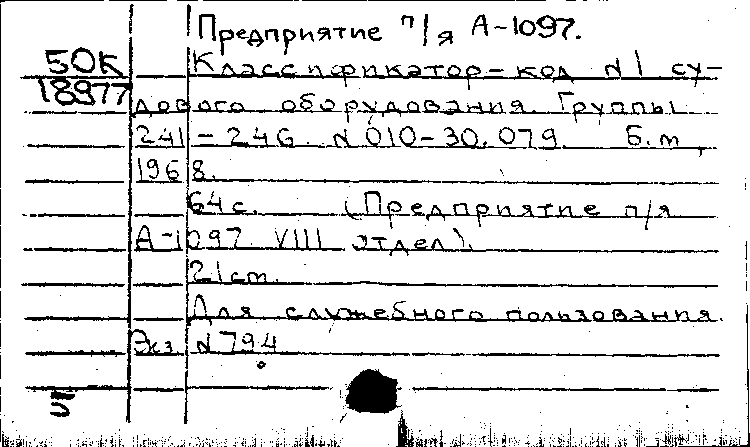 Предприятие п/я А-1097.
50К
Классификатор-код №1 су-
18977
дового оборудования. Группы
241-246 №010-30.079. Б.м.,
1968.
64 с. (Предприятие п/я
А-1097 VIII отдел).
21 ст.
Для служебного пользования.
Экз. №794